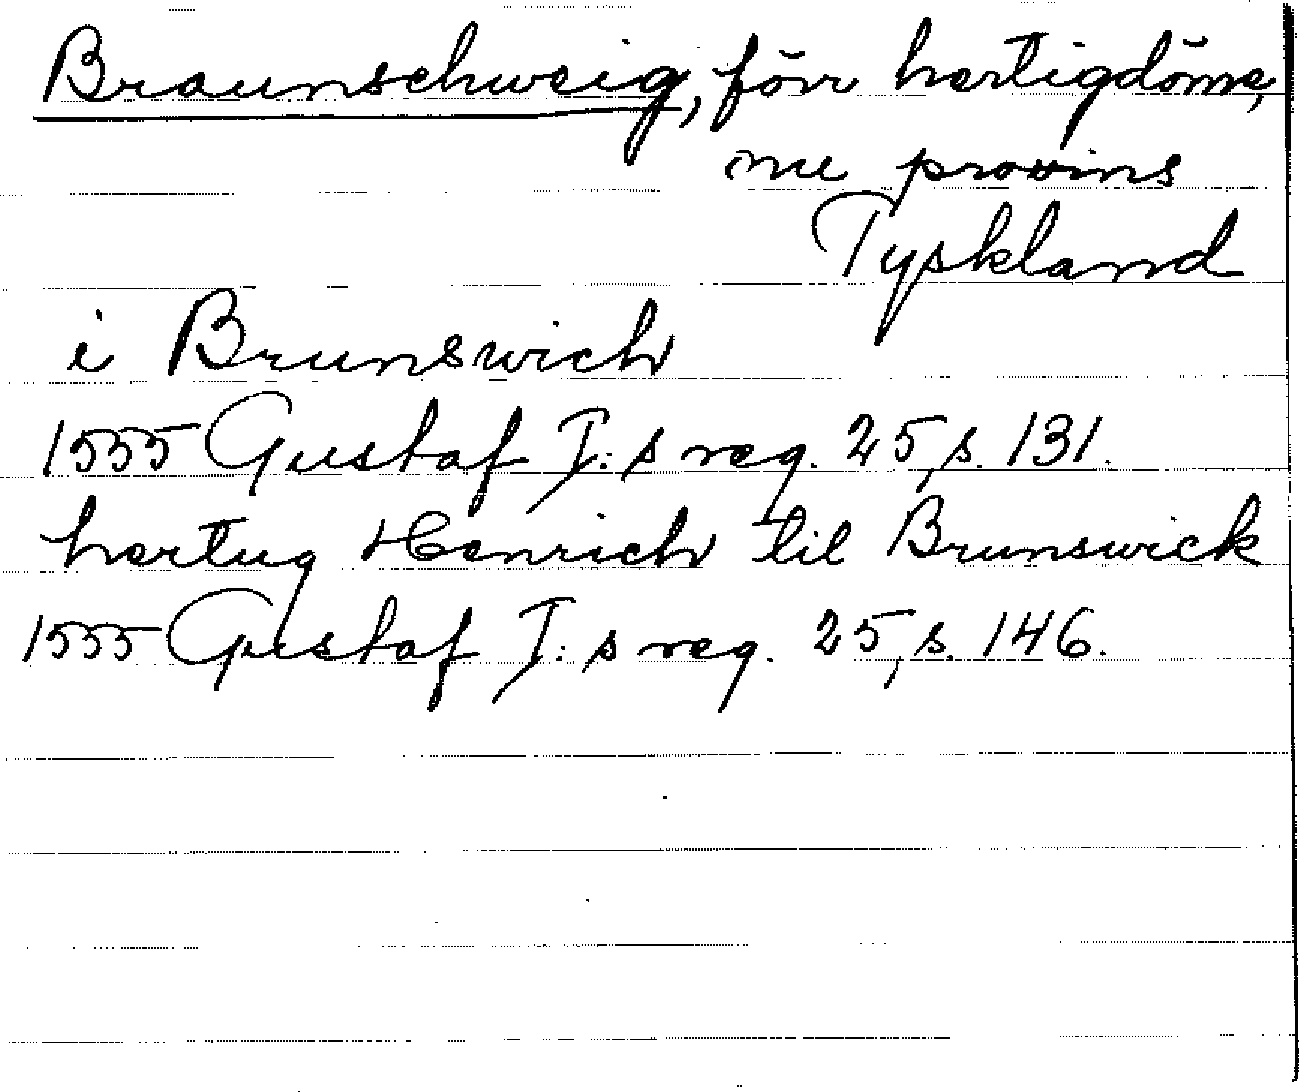 Braunschweig, förr hertigdöme,
nu provins
Tyskland
i Brunswich
1555 Gustaf I:s reg. 25, s. 131.
hertug Henrich til Brunswick
1555 Gustaf I:s reg. 25, s. 146.